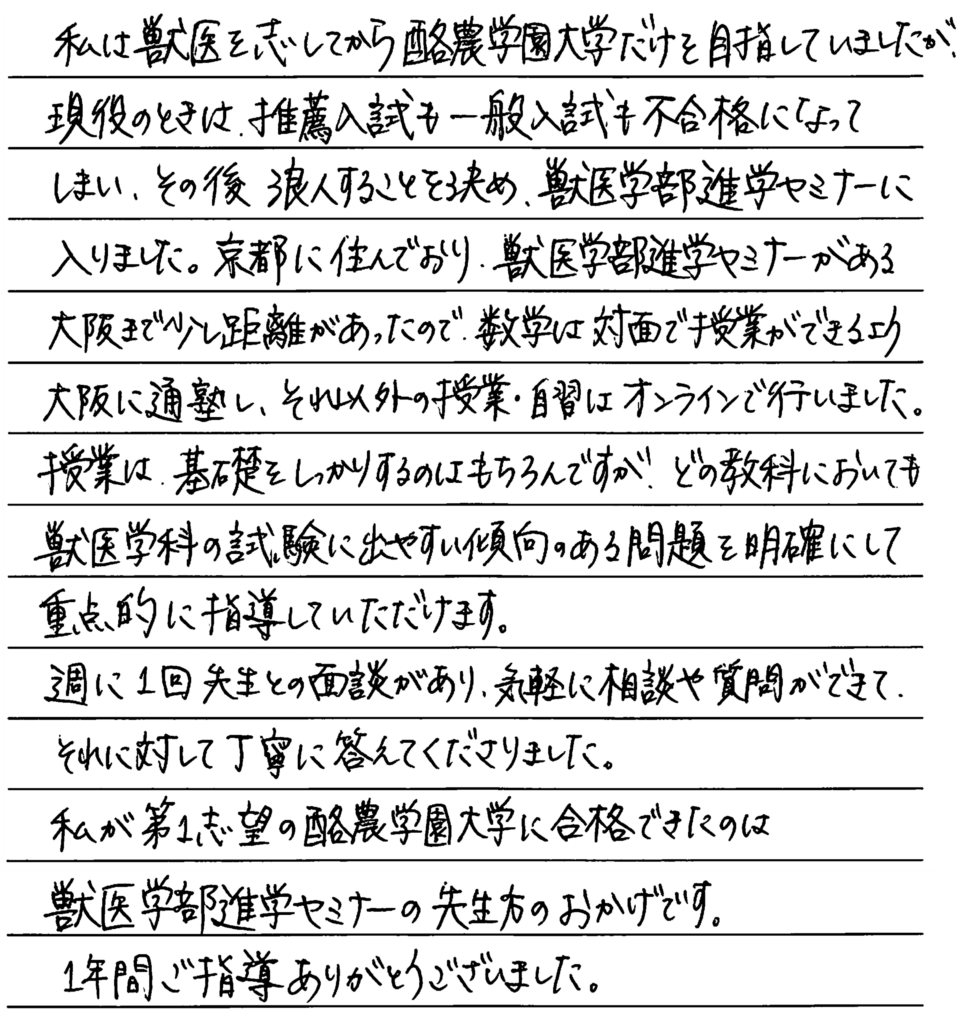 私は獣医を志してから酪農学園大学だけを目指していましたが、
現役のときは、推薦入試も一般入試も不合格になって
しまい、その後浪人することを決め、獣医学部進学セミナーに
入りました。京都に住んでおり、獣医学部進学セミナーがある
大阪まで少し距離があったので、数学は対面で授業ができるよう
大阪に通塾し、それ以外の授業・自習はオンラインで行いました。
授業は、基礎をしっかりするのはもちろんですが、どの教科においても
獣医学科の試験に出やすい傾向のある問題を明確にして
重点的に指導していただけます。
週に1回先生との面談があり、気軽に相談や質問ができて、
それに対して丁寧に答えてくださりました。
私が第1志望の酪農学園大学に合格できたのは
獣医学部進学セミナーの先生方のおかげです。
1年間ご指導ありがとうございました。